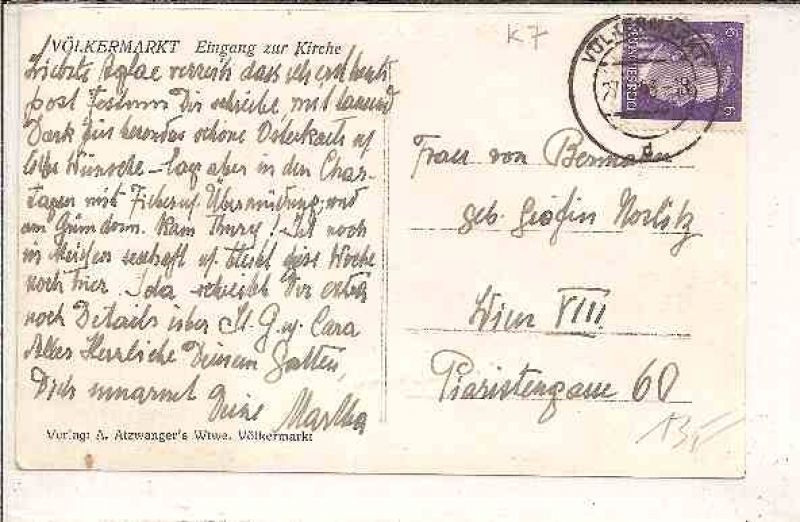 VÖLKERMARKT Eingang zur Kirche
K7
VÖLKERMARKT
6 6
DEUTSCHES REICH
d
Liebste Aglae verzeih dass ich erst heute
post Festum Dir schreibe mit tausend
Dank für besonders schöne Osterkarte u
liebe Wünsche – lag aber in den Char-
tagen mit Fieber u Übermüdung, und
am Gründonn. kam Thury! Ist noch
in seehaft u. bleibt diese Woche
noch hier. Ida schreibt Dir extra
noch Details über
Alles Herzliche Deinem Gatten,
Dich umarmt
Deine Martha
Verlag: A. Atzwanger's Wtwe. Völkermarkt
Frau von
geb. Gräfin
Wien VIII.
Piaristengasse 60